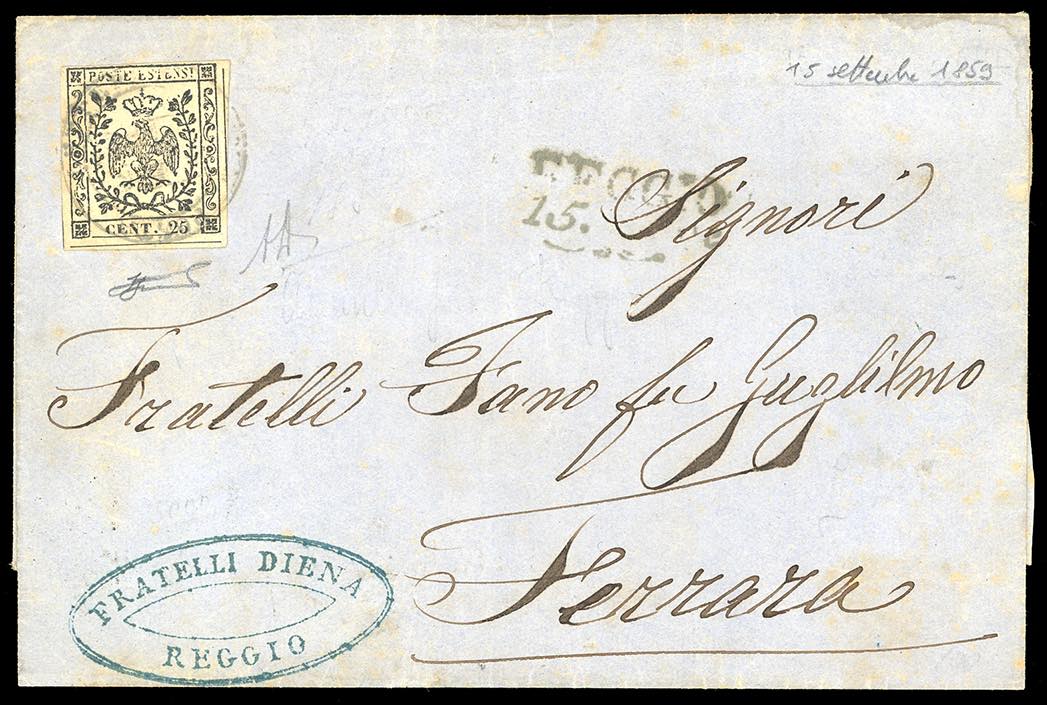 POSTE ESTENSI
CENT. 25
15 settembre 1859
REGGIO
15.
Signori
Fratelli Fano fu Guglilmo
Ferrara
FRATELLI DIENA
REGGIO